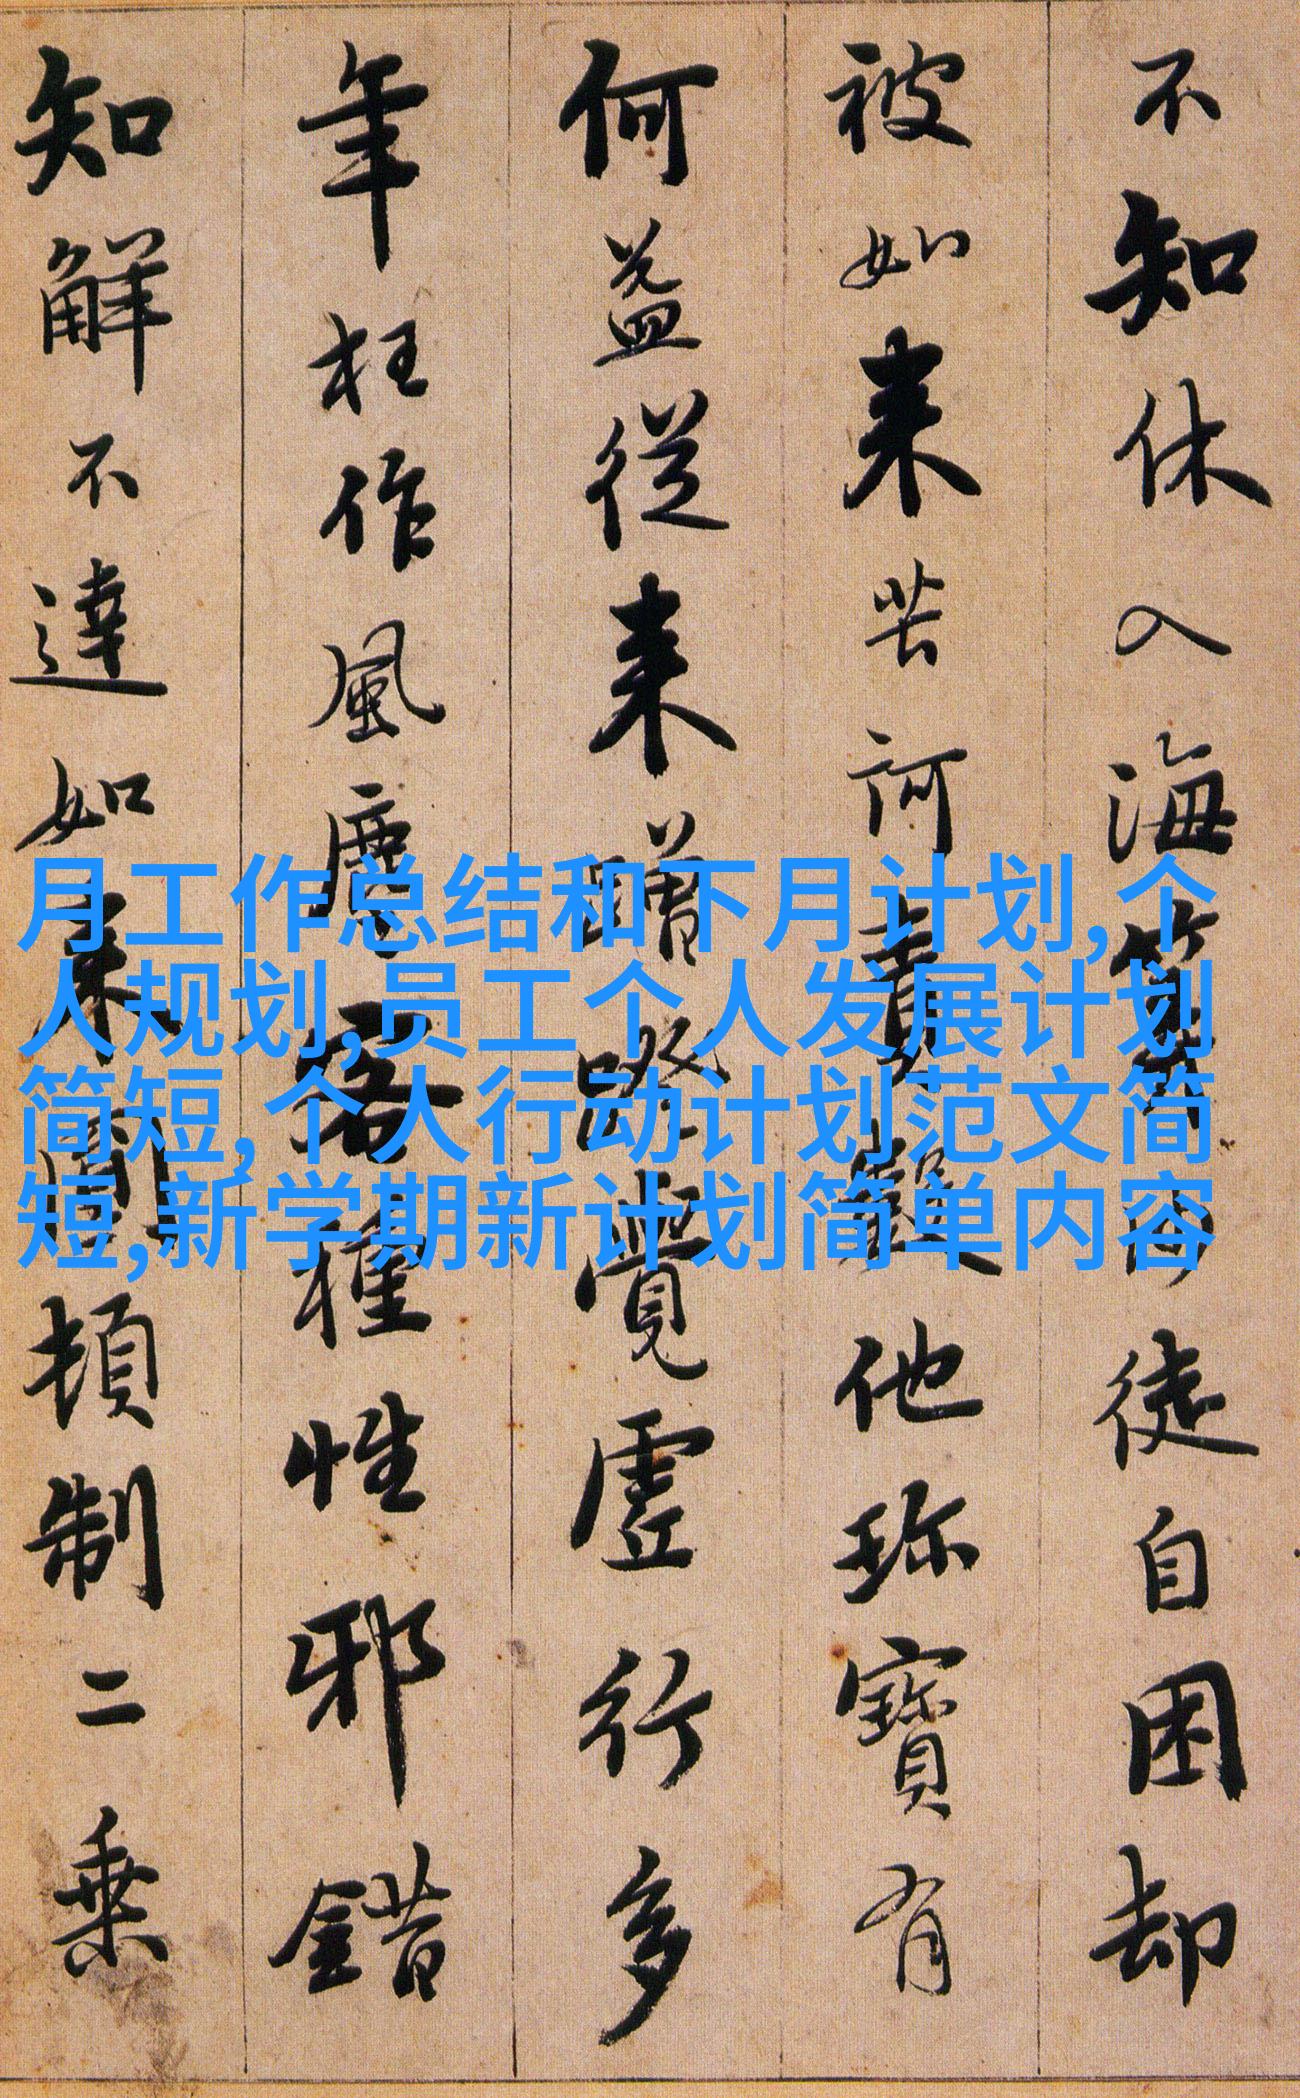 不知休入海算沙徒自困却
被如来苦訶責數他珍寶有
何益從来蹭蹬覺虛行多
年枉作風塵客種性邪錯
知解不達如来圓頓制二乘
月工作总结和下月计划,个
人规划,员工个人发展计划
简短,个人行动计划范文简
短,新学期新计划简单内容